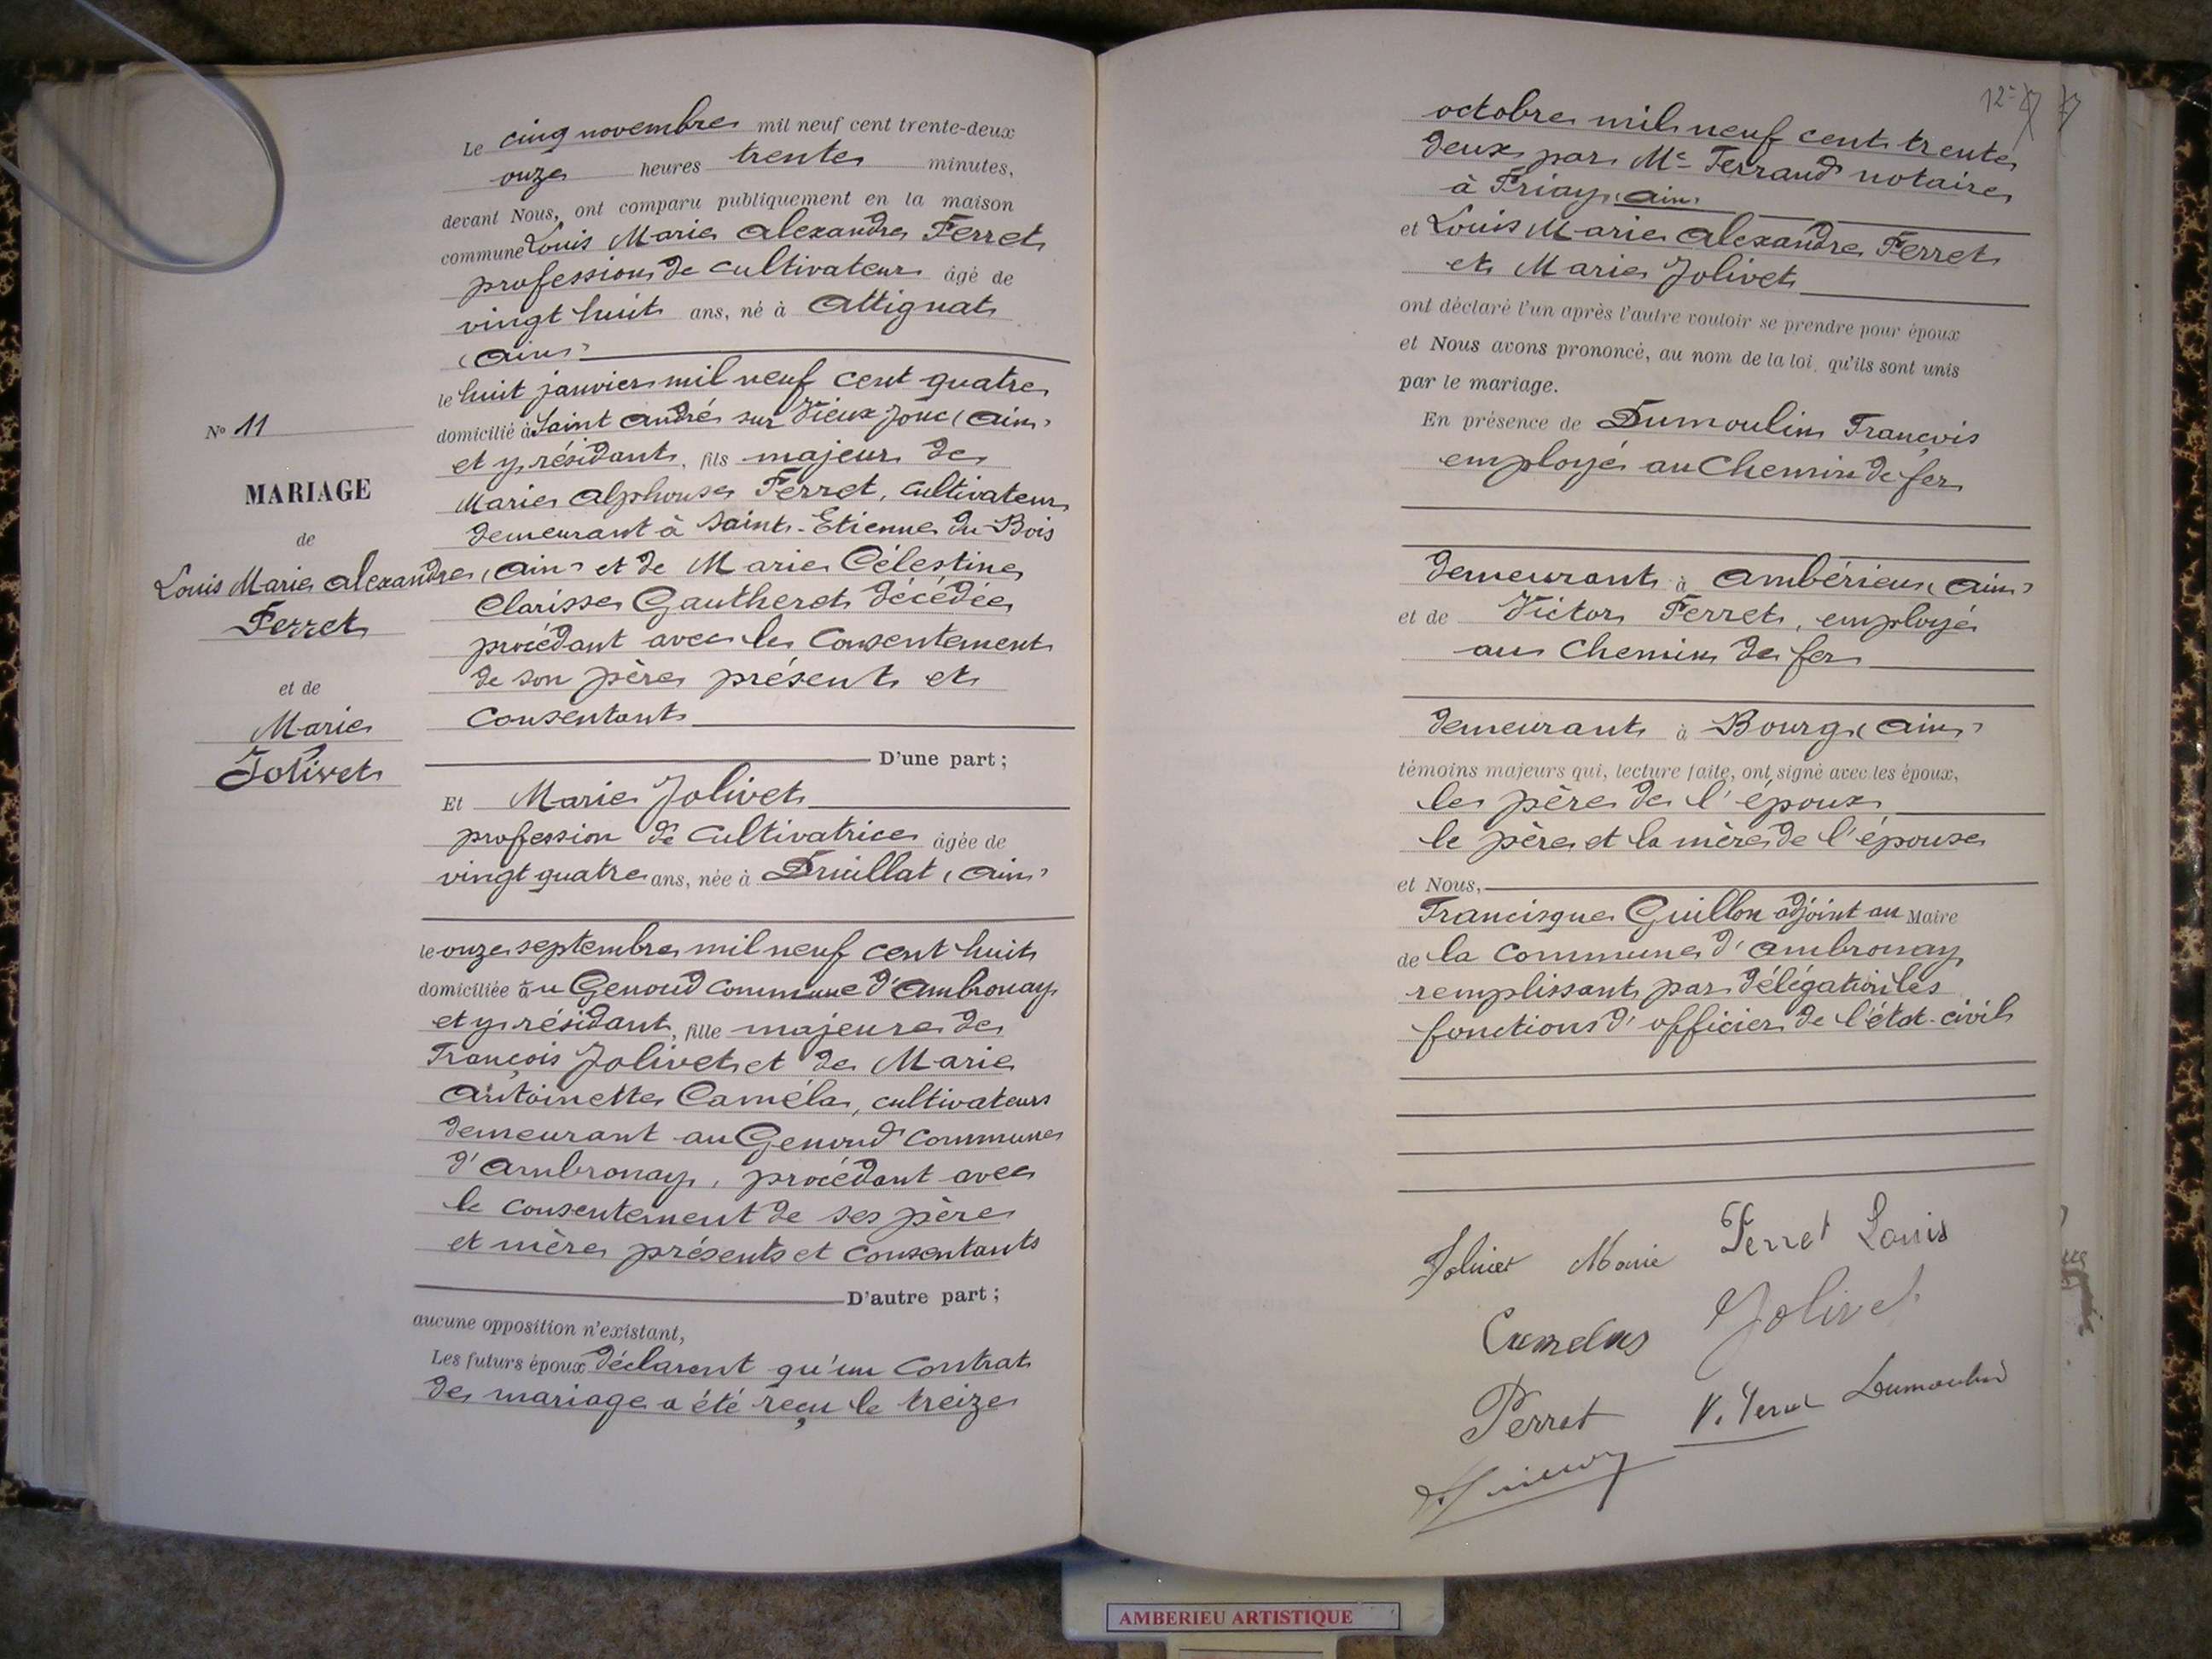 Le cinq novembre mil neuf cent trente-deux
onze heures trente minutes,
devant Nous, ont comparu publiquement en la maison
commune Louis Marie Alexandre Ferret
profession de cultivateur âgé de
vingt huit ans, né à Attignat
(Ain)
le huit janvier mil neuf cent quatre
domicilié à Saint André sur Vieux Jonc (Ain)
et y résidant, fils majeur de
Marie Alphonse Ferret, cultivateur
demeurant à Saint-Etienne du Bois
(Ain) et de Marie Célestine
Clarisse Gautheret décédée
procédant avec le consentement
de son père présent et
consentant
D'une part;
Et Marie Jolivet
profession de cultivatrice âgée de
vingt quatre ans, née à Druillat (Ain)
le onze septembre mil neuf cent huit
domiciliée au Genoud commune d'Ambronay
et y résidant, fille majeure de
François Jolivet et de Marie
Antoinette Camélas, cultivateurs
demeurant au Genoud commune
d'Ambronay, procédant avec
le consentement de ses père
et mère présents et consentants
D'autre part;
aucune opposition n'existant,
Les futurs époux déclarent qu'un contrat
de mariage a été reçu le treize
N° 11
MARIAGE
de
Louis Marie Alexandre
Ferret
et de
Marie
Jolivet
octobre mil neuf cent trente
deux par Me Ferrand notaire
à Priay (Ain)
et Louis Marie Alexandre Ferret
et Marie Jolivet
ont déclaré l'un après l'autre vouloir se prendre pour époux
et Nous avons prononcé, au nom de la loi, qu'ils sont unis
par le mariage.
En présence de Dumoulin François
employé au Chemin de fer
demeurant à Ambérieu (Ain)
et de Victor Ferret, employé
au Chemin de fer
demeurant à Bourg (Ain)
témoins majeurs qui, lecture faite, ont signé avec les époux,
le père de l'époux
le père et la mère de l'épouse
et Nous,
Francisque Guillon adjoint au Maire
de la commune d'Ambronay
remplissant par délégation les
fonctions d'officier de l'état-civil
Jolivet Marie Ferret Louis
Camelas Jolivet
Perret V. Ferret Dumoulin
AMBERIEU ARTISTIQUE